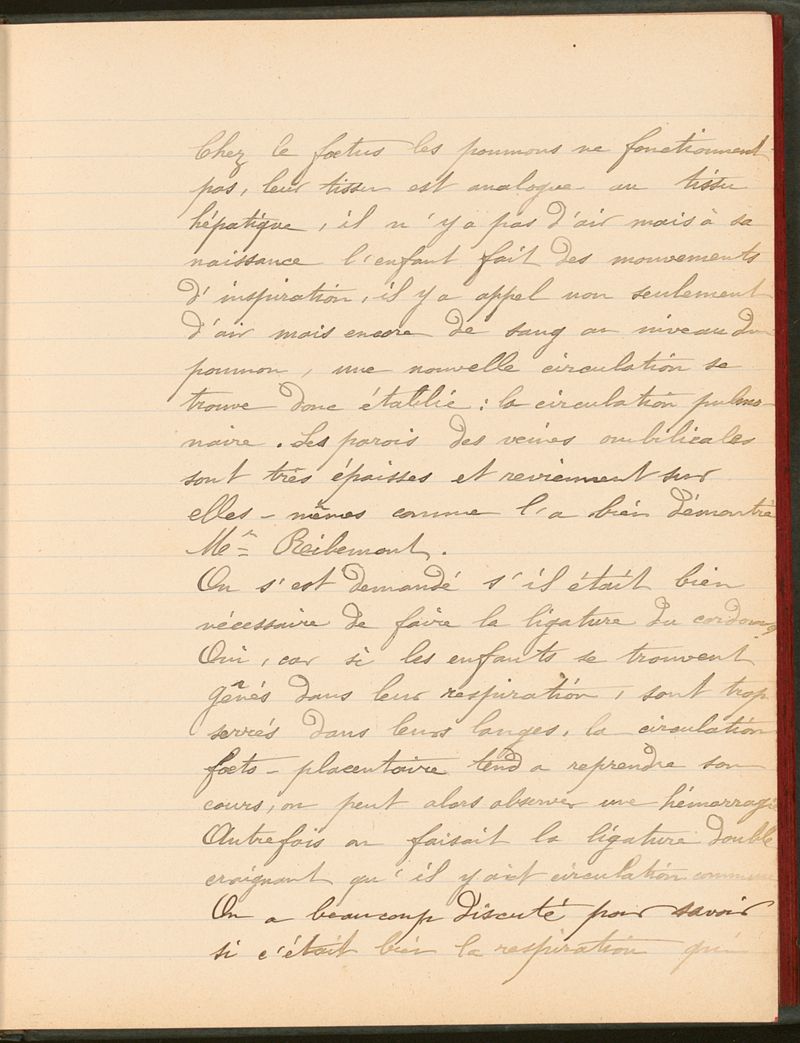 Chez le fœtus les poumons ne fonctionnent
pas, leur tissu est analogue au tissu
hépatique, il n'y a pas d'air mais à sa
naissance l'enfant fait des mouvements
d'inspiration, il y a appel non seulement
d'air mais encore de sang au niveau du
poumon, une nouvelle circulation se
trouve donc établie : la circulation pulmo-
naire. Les parois des veines ombilicales
sont très épaisses et reviennent sur
elles-mêmes comme l'a bien démontré
Mr Ribemont.
On s'est demandé s'il était bien
nécessaire de faire la ligature du cordon
Oui, car si les enfants se trouvent
gênés dans leur respiration, sont trop
serrés dans leurs langes, la circulation
fœto-placentaire tend a reprendre son
cours, on peut alors observer une hémorragie
Autrefois on faisait la ligature double
craignant qu'il y ait circulation commune
On a beaucoup discuté pour savoir
si c'était bien la respiration qui